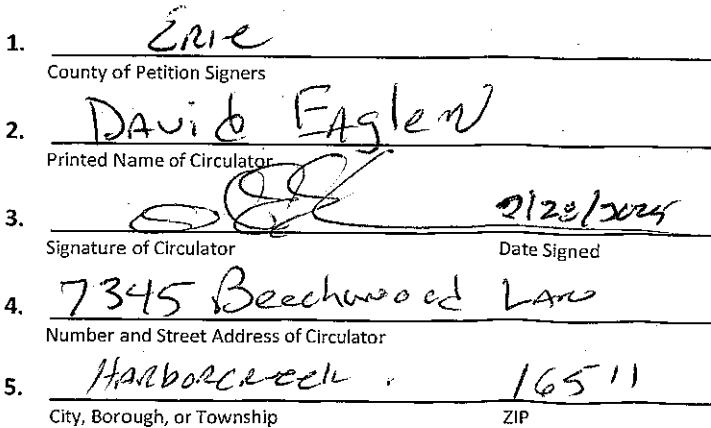 1. Erie
County of Petition Signers
2. David Eaglen
Printed Name of Circulator
3. 2/28/2025
Signature of Circulator Date Signed
4. 7345 Beechwood Lane
Number and Street Address of Circulator
5. Harborcreek 16511
City, Borough, or Township ZIP